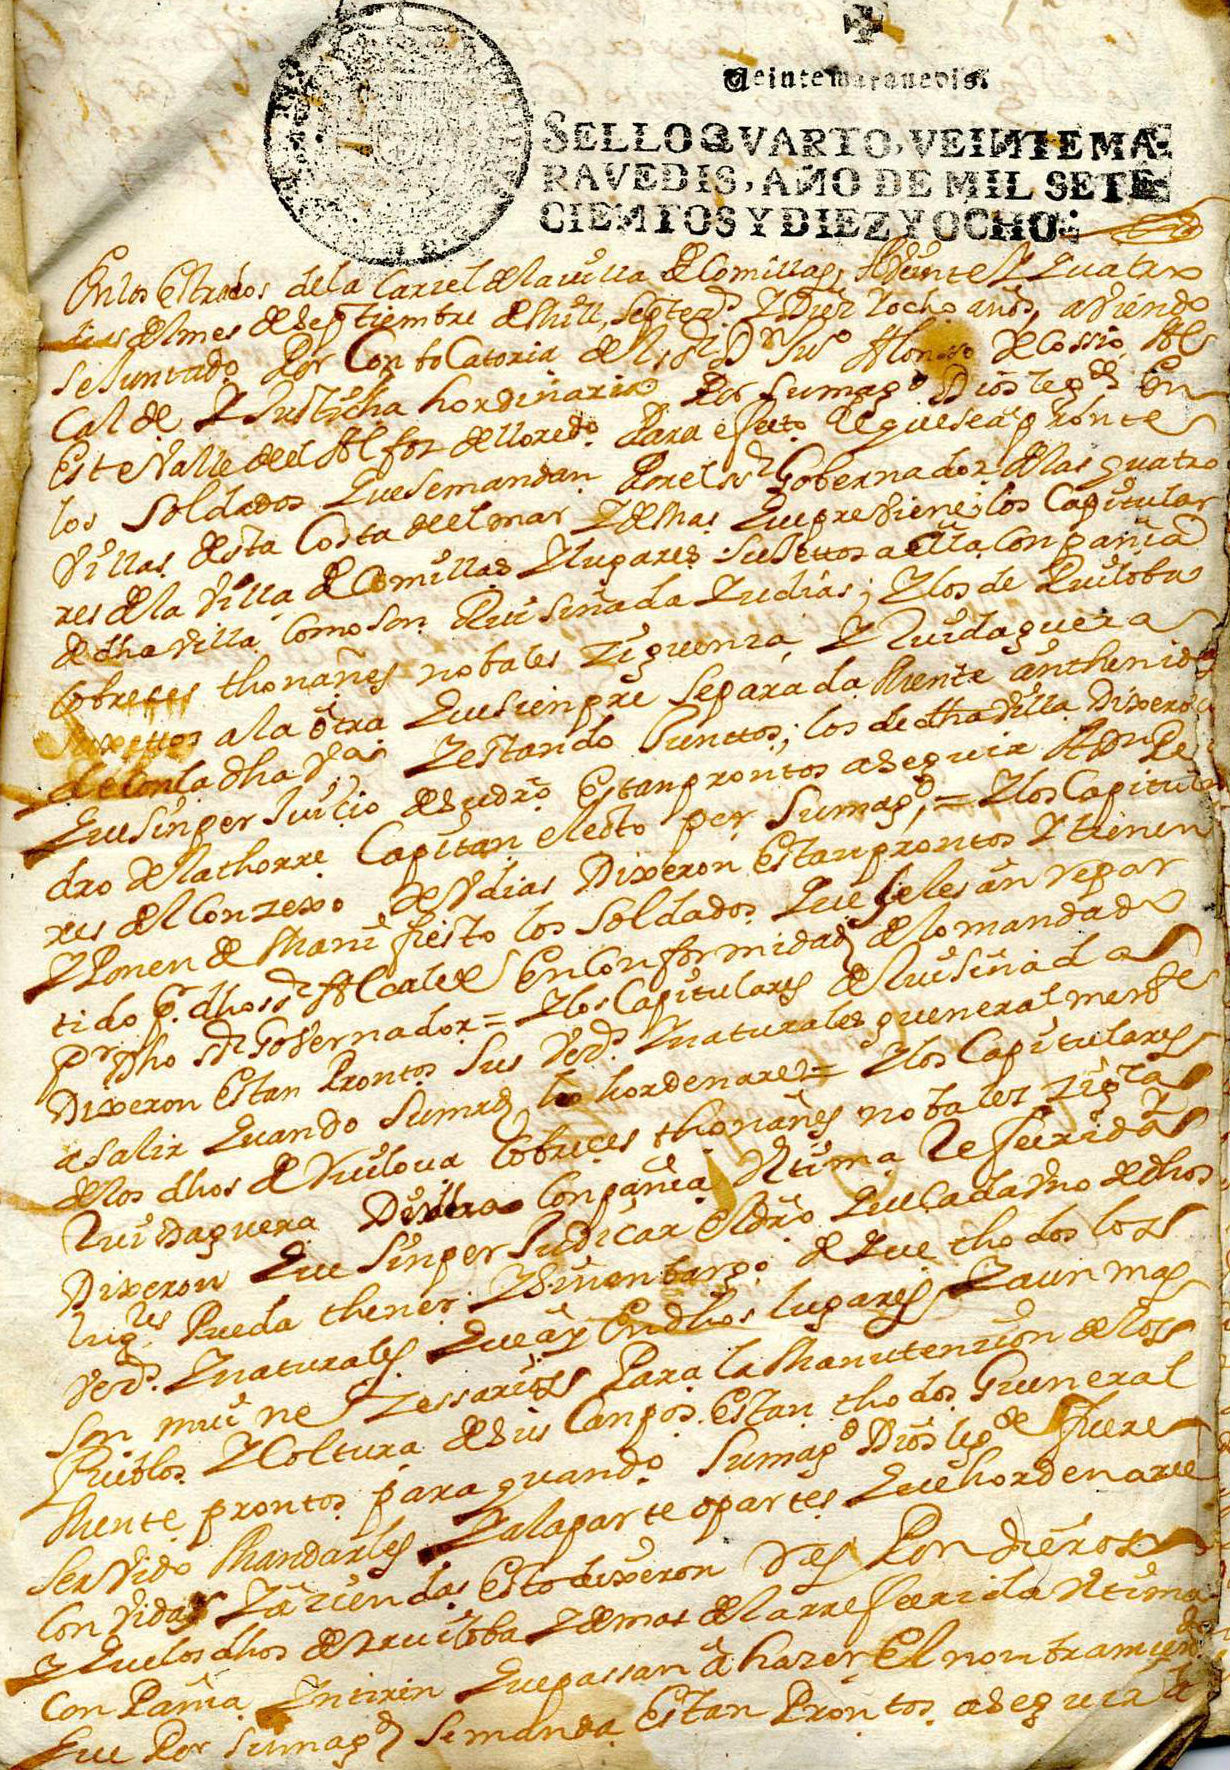 Veinte maravedis.
SELLO QVARTO, VEINTE MA-
RAVEDIS, AÑO DE MIL SETE-
CIENTOS Y DIEZ Y OCHO.
En los estrados de la Carzel de la villa de Comillas A Veinte y quatro
dias del mes de Septiembre de Mill Setezs y Diez y ocho años, aviendo
se Juntado Por Conbocatoria del sr Dn Juo Alonso de Cossio Al
Calde y Justicia hordinario Por Sumagd Dios legde En
Este Valle del Alfoz de lloredo Para efecto de que sean prontos
los Soldados que se mandan Por el sr Gobernador de las quatro
Villas desta Costa de el mar y demas que previene; los Capitula
res de la Villa de Comillas y lugares Sujettos a ella Conpañia
de dha villa, como son Ruisiñada y udias; y los de Ruiloba
Cobreces thoñanes nobales ziguenza, y Ruidaguera
Sujettos a la otra que sienpre separada Mente an thenido
de Con la dha va y estando Junttos; los de dha villa Dixeron
que sin per Juicio de su dro Estan prontos a seguir A Dn Pe
dro de la thorre Capitan electo por Sumagd, = y los Capitula
res del Conzexo de Vdias Dixeron Estan prontos y tienen
y Ponen de Manifiesto los Soldados que se les an repar
tido Pr dho sr Alcalde En Conformidad de lo mandado
pr dho sr Governador = y los Capitulares de Ruisiñada
Dixeron Estan Prontos sus Vezs y naturales gueneralmente
a salir quando Sumrd lo hordenare = y los Capitulares
de los dhos de Ruilova Cobreces thoñanes nobales zigza y
Ruidaguera Conpañia Vltima Referida
Dixeron que sin per Judicar el dro que Cada Vno de dhos
lugres Pueda thener. y sin enbargo de que thodos los
Vezs y naturales que ay En dhos lugares y aun mas
son mui nezessarios Para la Manutenzion de los
Pueblos y Coltura de sus Canpos. Estan thodos Gueneral
Mente prontos para quando Sumagd Dios legde fuere
servido Mandarles y a la parte o partes que hordenare
Con Vidas y aziendas Esto dixeron y Res Pondieron
y que los dhos de Ruiloba y demas de la rreferida Vltima
Conpañia ynterin que passan a hazer El nombramiento
que Por Sumagd se manda Estan Prontos a seguir la